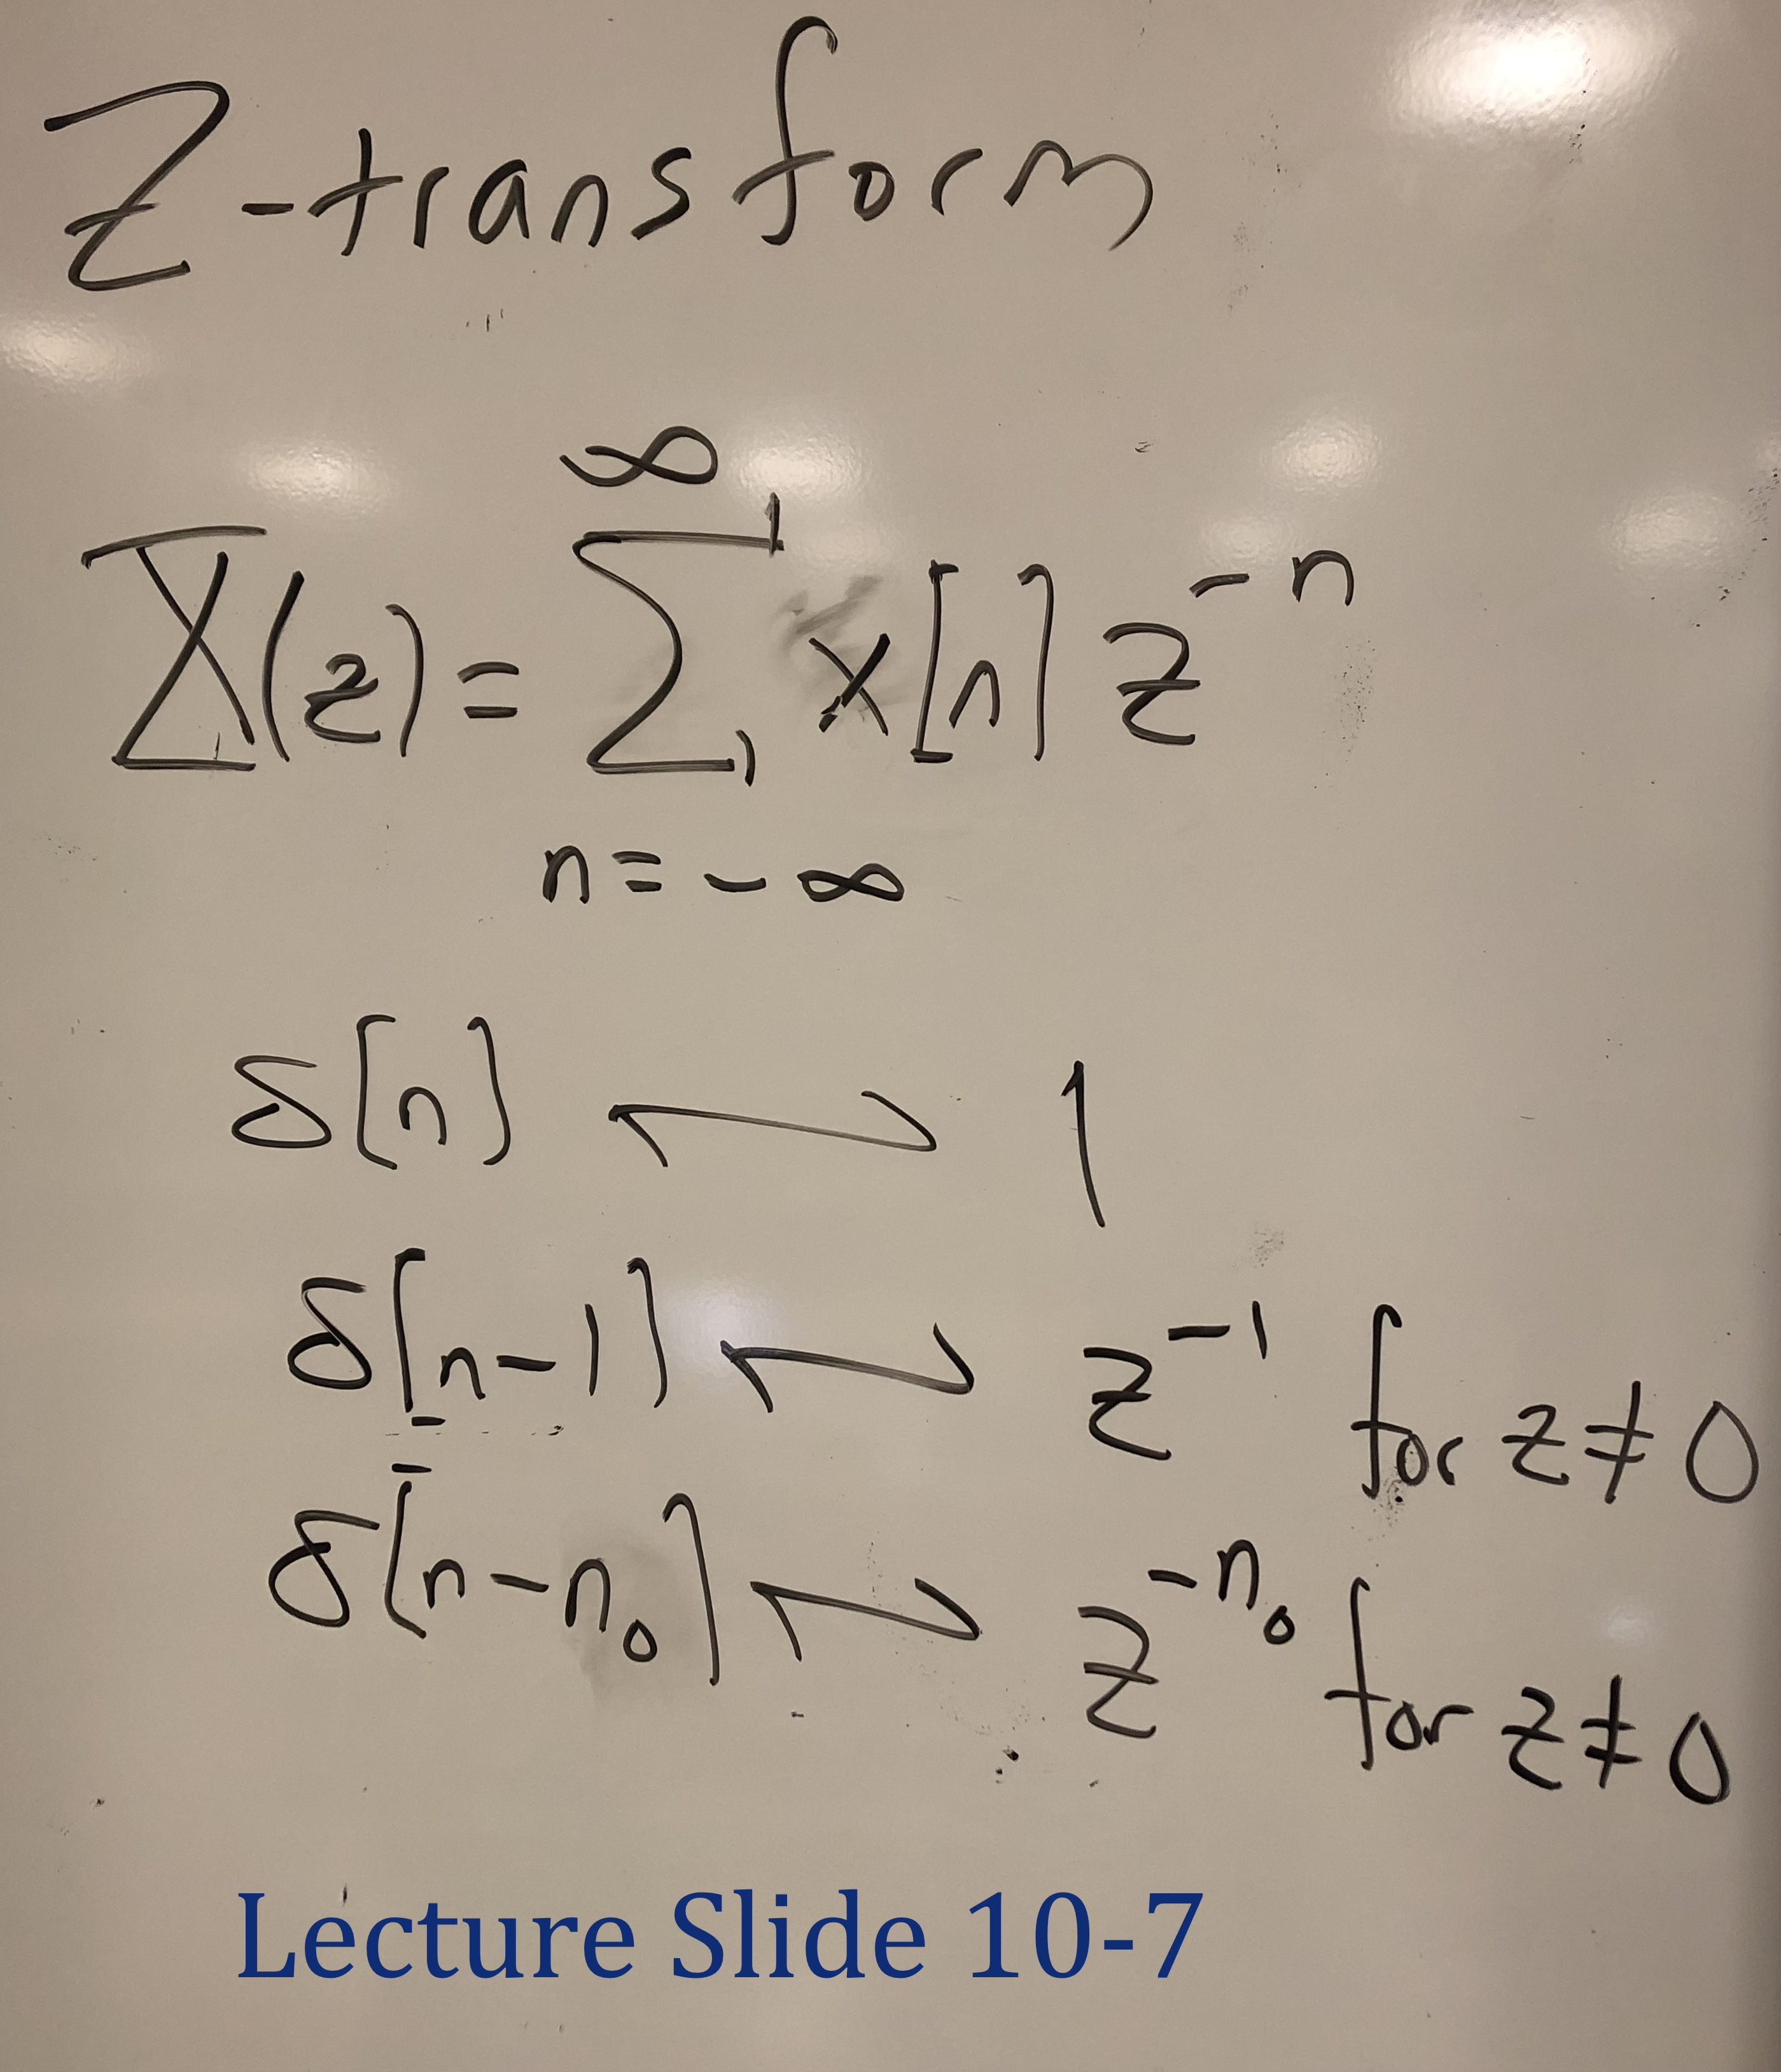 Z-transform
∞
X(z) = Σ x[n] z⁻ⁿ
n = -∞
δ[n] ↔ 1
δ[n-1] ↔ z⁻¹ for z ≠ 0
δ[n-n₀] ↔ z^(-n₀) for z ≠ 0
Lecture Slide 10-7